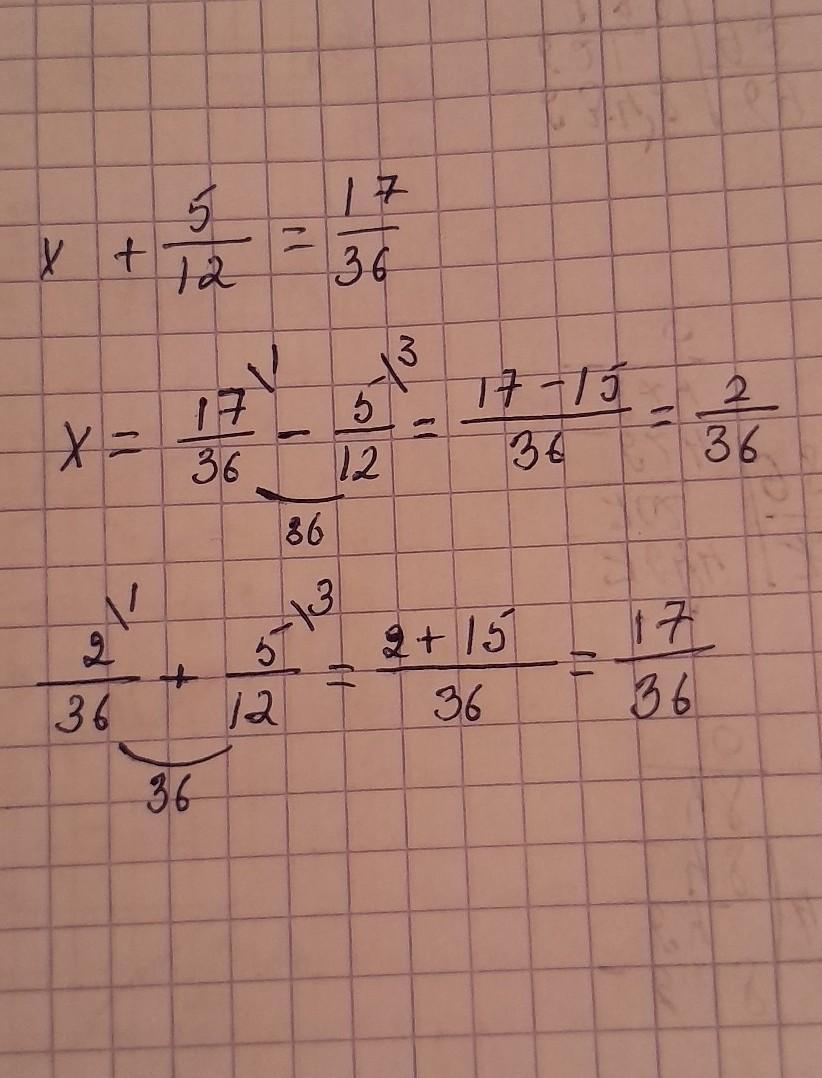 x + 5/12 = 17/36
x = 17/36 \1 - 5/12 \3 = 17-15/36 = 2/36
36
2/36 \1 + 5/12 \3 = 2+15/36 = 17/36
36